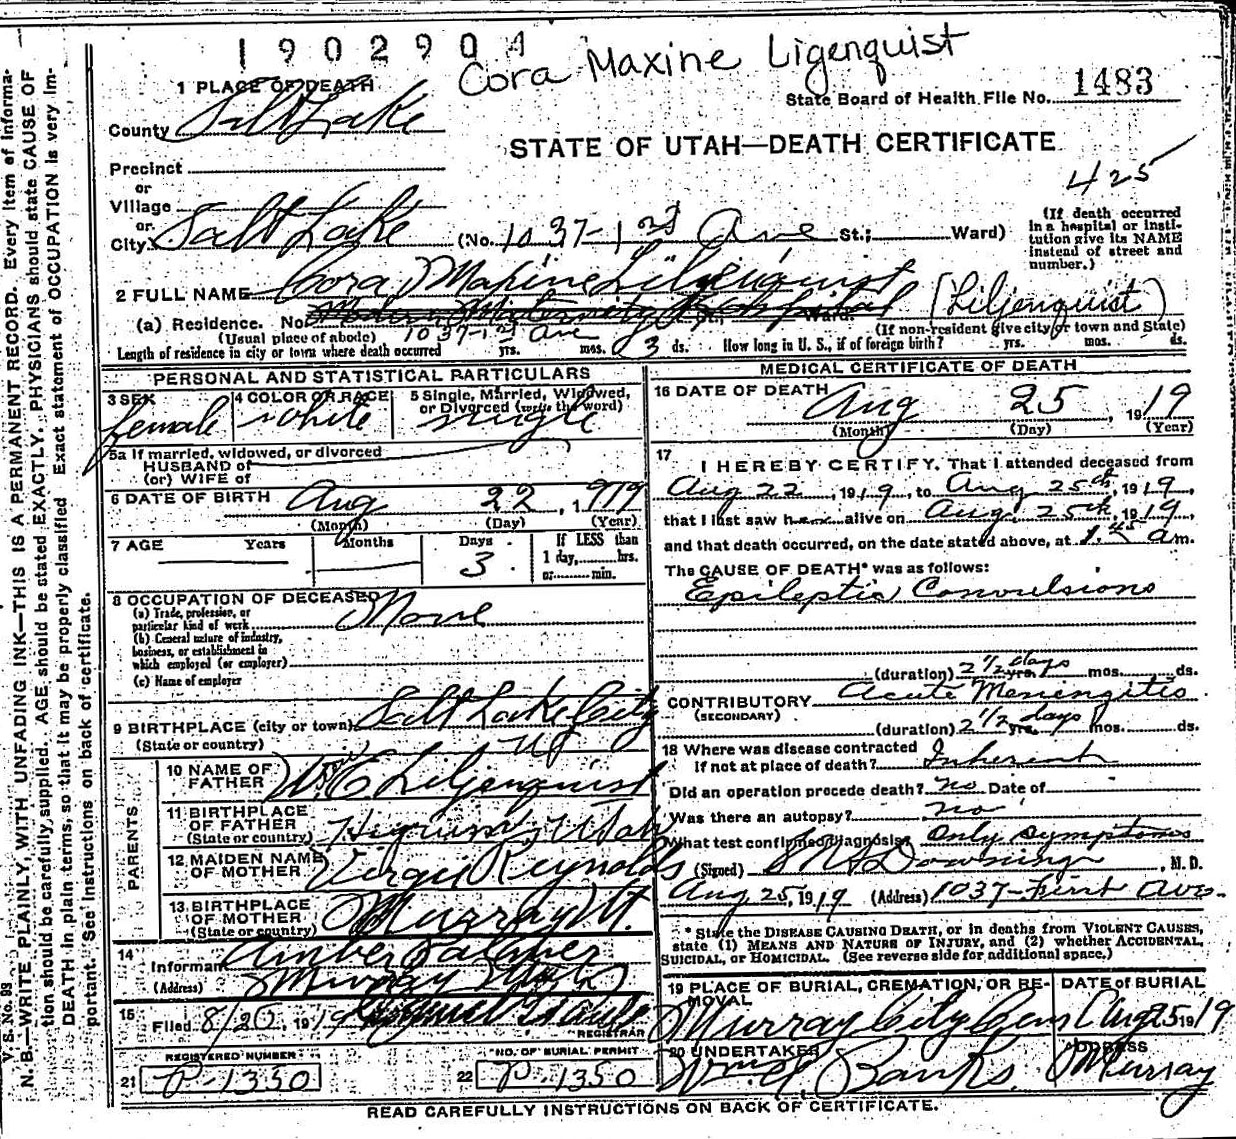 1902904
Cora Maxine Ligenquist
1 PLACE OF DEATH
State Board of Health File No. 1483
County Salt Lake
STATE OF UTAH—DEATH CERTIFICATE
425
Precinct
or
Village
or
City Salt Lake (No. 1037-1st Ave St.; Ward)
(If death occurred in a hospital or insti-
tution give its NAME
instead of street and
number.)
2 FULL NAME Cora Maxine Liljenquist (Liljenquist)
(a) Residence. No. St., Ward.
(Usual place of abode) 1037-1st Ave (If non-resident give city or town and State)
Length of residence in city or town where death occurred yrs. mos. 3 ds. How long in U. S., if of foreign birth? yrs. mos. ds.
PERSONAL AND STATISTICAL PARTICULARS
3 SEX female
4 COLOR OR RACE white
5 Single, Married, Widowed,
or Divorced (write the word) single
5a If married, widowed, or divorced
HUSBAND of
(or) WIFE of
6 DATE OF BIRTH Aug 22, 1919
(Month) (Day) (Year)
7 AGE Years Months Days 3
If LESS than
1 day, hrs.
or min.
8 OCCUPATION OF DECEASED None
(a) Trade, profession, or
particular kind of work
(b) General nature of industry,
business, or establishment in
which employed (or employer)
(c) Name of employer
9 BIRTHPLACE (city or town) Salt Lake City
(State or country) Ut
PARENTS
10 NAME OF
FATHER W. E. Liljenquist
11 BIRTHPLACE
OF FATHER
(State or country) Utah
12 MAIDEN NAME
OF MOTHER Virgie Reynolds
13 BIRTHPLACE
OF MOTHER
(State or country) Murray Ut.
14
Informant Amber Palmer
(Address) Murray Utah
15
Filed 8/20, 1919
REGISTRAR
REGISTERED NUMBER
21 P-1350
NO. OF BURIAL PERMIT
22 P-1350
MEDICAL CERTIFICATE OF DEATH
16 DATE OF DEATH Aug 25, 1919
(Month) (Day) (Year)
17
I HEREBY CERTIFY. That I attended deceased from
Aug 22, 1919, to Aug 25th, 1919,
that I last saw her alive on Aug. 25th, 1919,
and that death occurred, on the date stated above, at 1.45 am.
The CAUSE OF DEATH* was as follows:
Epileptic Convulsions
(duration) 2 1/2 yrs. days mos. ds.
CONTRIBUTORY Acute Meningitis
(SECONDARY)
(duration) 2 1/2 yrs. days mos. ds.
18 Where was disease contracted
If not at place of death? Inherent
Did an operation precede death? No Date of
Was there an autopsy? no
What test confirmed diagnosis? Only symptoms
(Signed) Downing, M. D.
Aug 25, 1919 (Address) 1037-First Ave.
* State the DISEASE CAUSING DEATH, or in deaths from VIOLENT CAUSES,
state (1) MEANS AND NATURE OF INJURY, and (2) whether ACCIDENTAL,
SUICIDAL, or HOMICIDAL. (See reverse side for additional space.)
19 PLACE OF BURIAL, CREMATION, OR RE-
MOVAL Murray City Cem
DATE of BURIAL
Aug 25 1919
20 UNDERTAKER
Wm. A. Banks.
ADDRESS
Murray
READ CAREFULLY INSTRUCTIONS ON BACK OF CERTIFICATE.
V. S. No. 83
N. B.—WRITE PLAINLY, WITH UNFADING INK—THIS IS A PERMANENT RECORD. Every item of informa-
tion should be carefully supplied. AGE should be stated EXACTLY. PHYSICIANS should state CAUSE OF
DEATH in plain terms, so that it may be properly classified Exact statement of OCCUPATION is very im-
portant. See instructions on back of certificate.